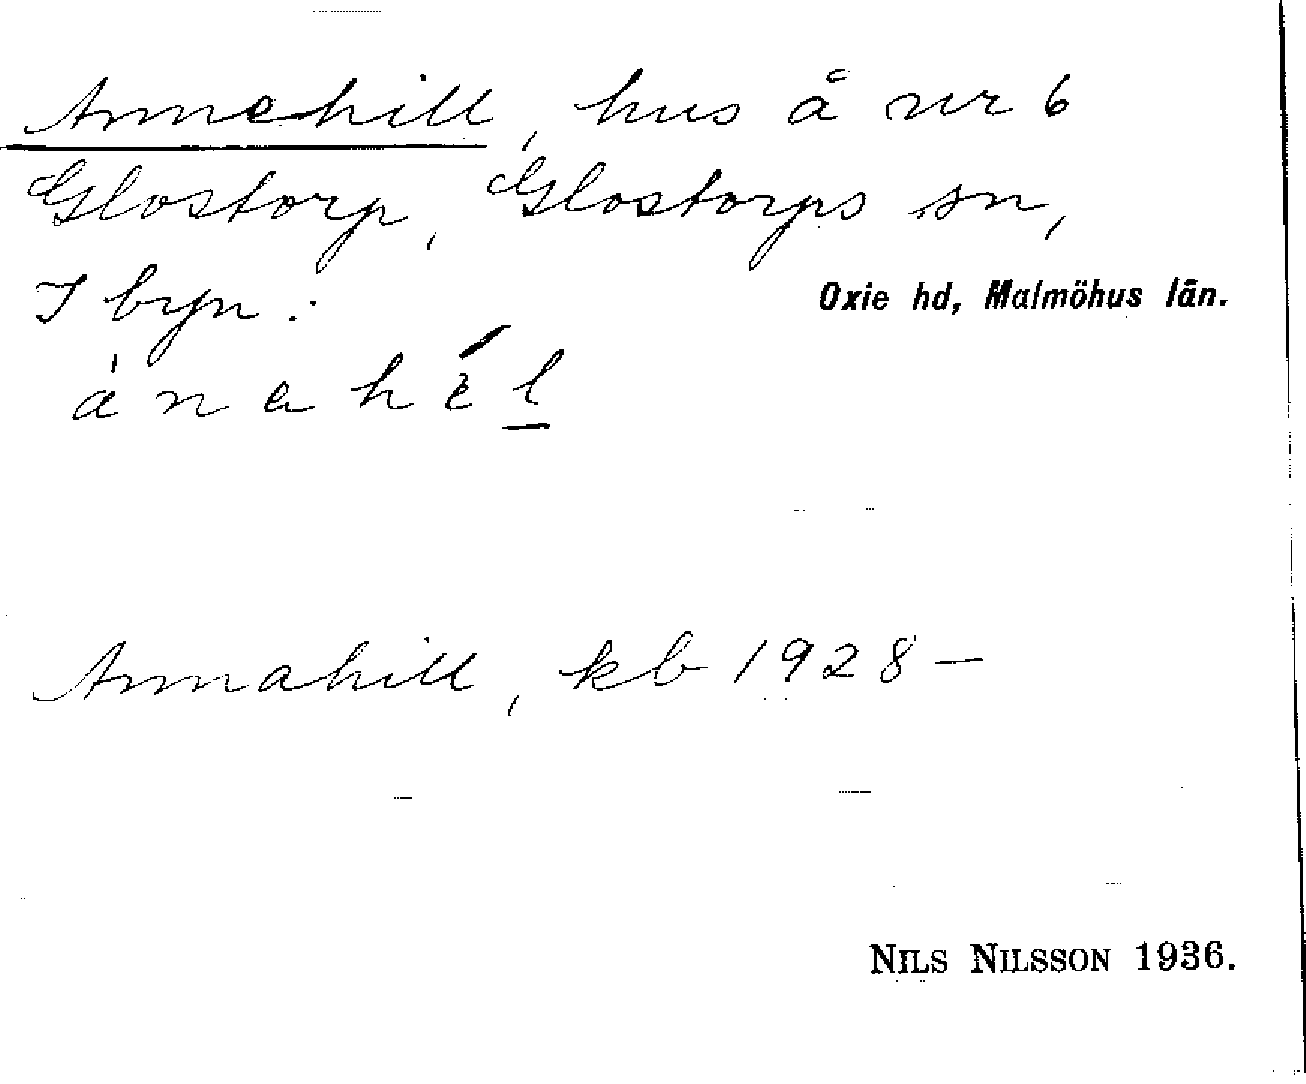 Annehill, hus å nr 6
Glostorp, Glostorps sn,
Oxie hd, Malmöhus län.
I byn:
ànahél
Annahill, kb 1928—
NILS NILSSON 1936.